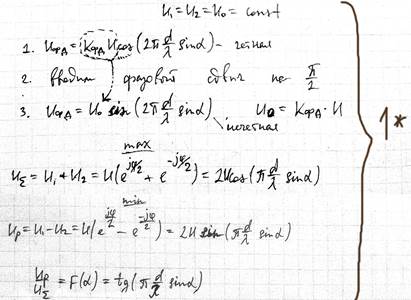 U₁ = U₂ = U₀ = const
1. UФД = KФД U cos (2π d/λ sin α) – четная
2. вводим фазовый сдвиг на π/2
3. UФД = U₀ sin (2π d/λ sin α) нечетная U₀ = KФД · U
max
U_Σ = U₁ + U₂ = U(e^{jφ/2} + e^{-jφ/2}) = 2U cos (π d/λ sin α)
min
U_P = U₁ - U₂ = U(e^{jφ/2} - e^{-jφ/2}) = 2U sin (π d/λ sin α)
U_P/U_Σ = F(α) = tg (π d/λ sin α)
1*